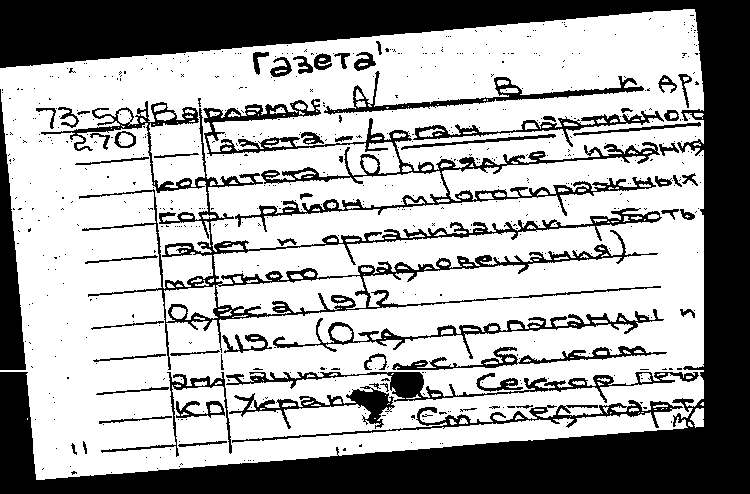 Газета
73-50 Варламов, А. В. и др.
270 Газета - орган партийного
комитета. (О порядке издания
гор., район., многотиражных
газет и организации работы
местного радиовещания).
Одесса, 1972
119 с. (Отд. пропаганды и
агитации Одес. обл. ком.
КП Украины. Сектор печати
См. след. карт
11